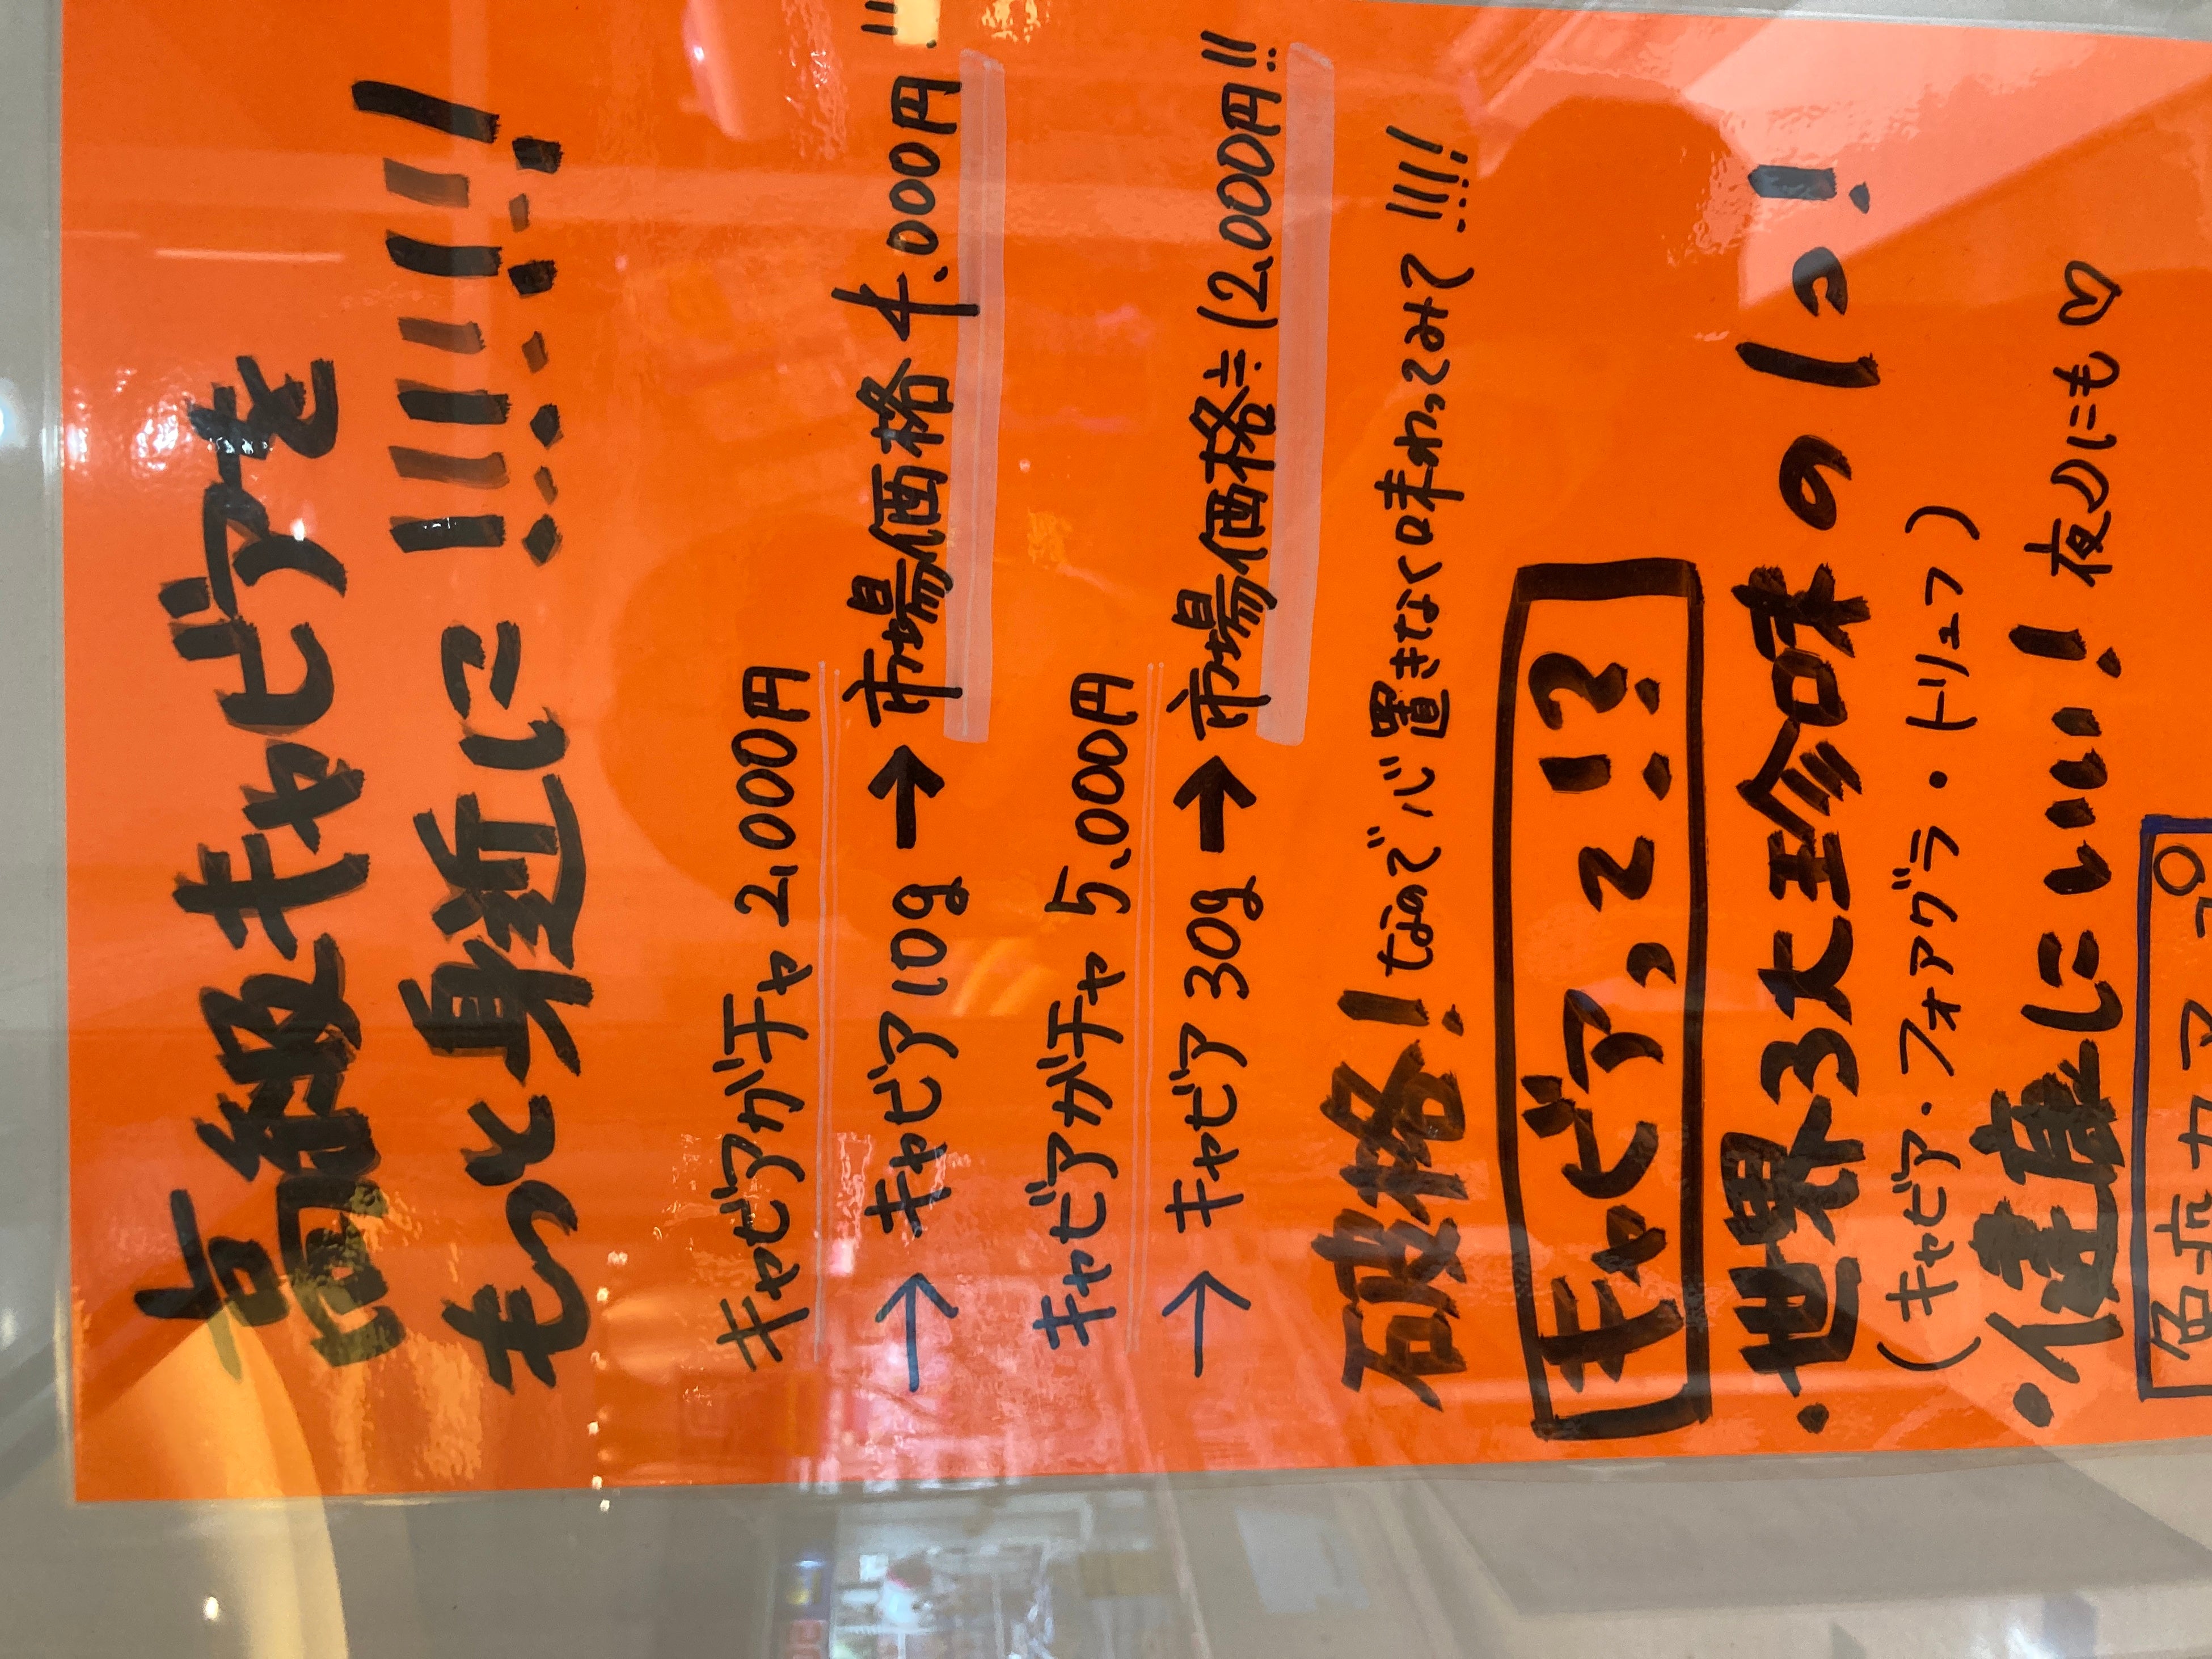 高級キャビアを
もっと身近に!!!!!!!
キャビアガチャ 2,000円
→ キャビア 10g → 市場価格 4,000円!!!
キャビアガチャ 5,000円
→ キャビア 30g → 市場価格≒12,000円!!!
破格!なので心置きなく味わってみて!!!!!
キャビアって!?
・世界3大珍味の1つ!
(キャビア・フォアグラ・トリュフ)
・健康にいい!夜のにも♡